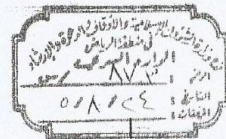 وزارة الشئون الإسلامية والأوقاف والدعوة والإرشاد
في منطقة الرياض
الوارد
الرقم ٨٧٣
التاريخ ٥/٨/٢٤
المرفقات